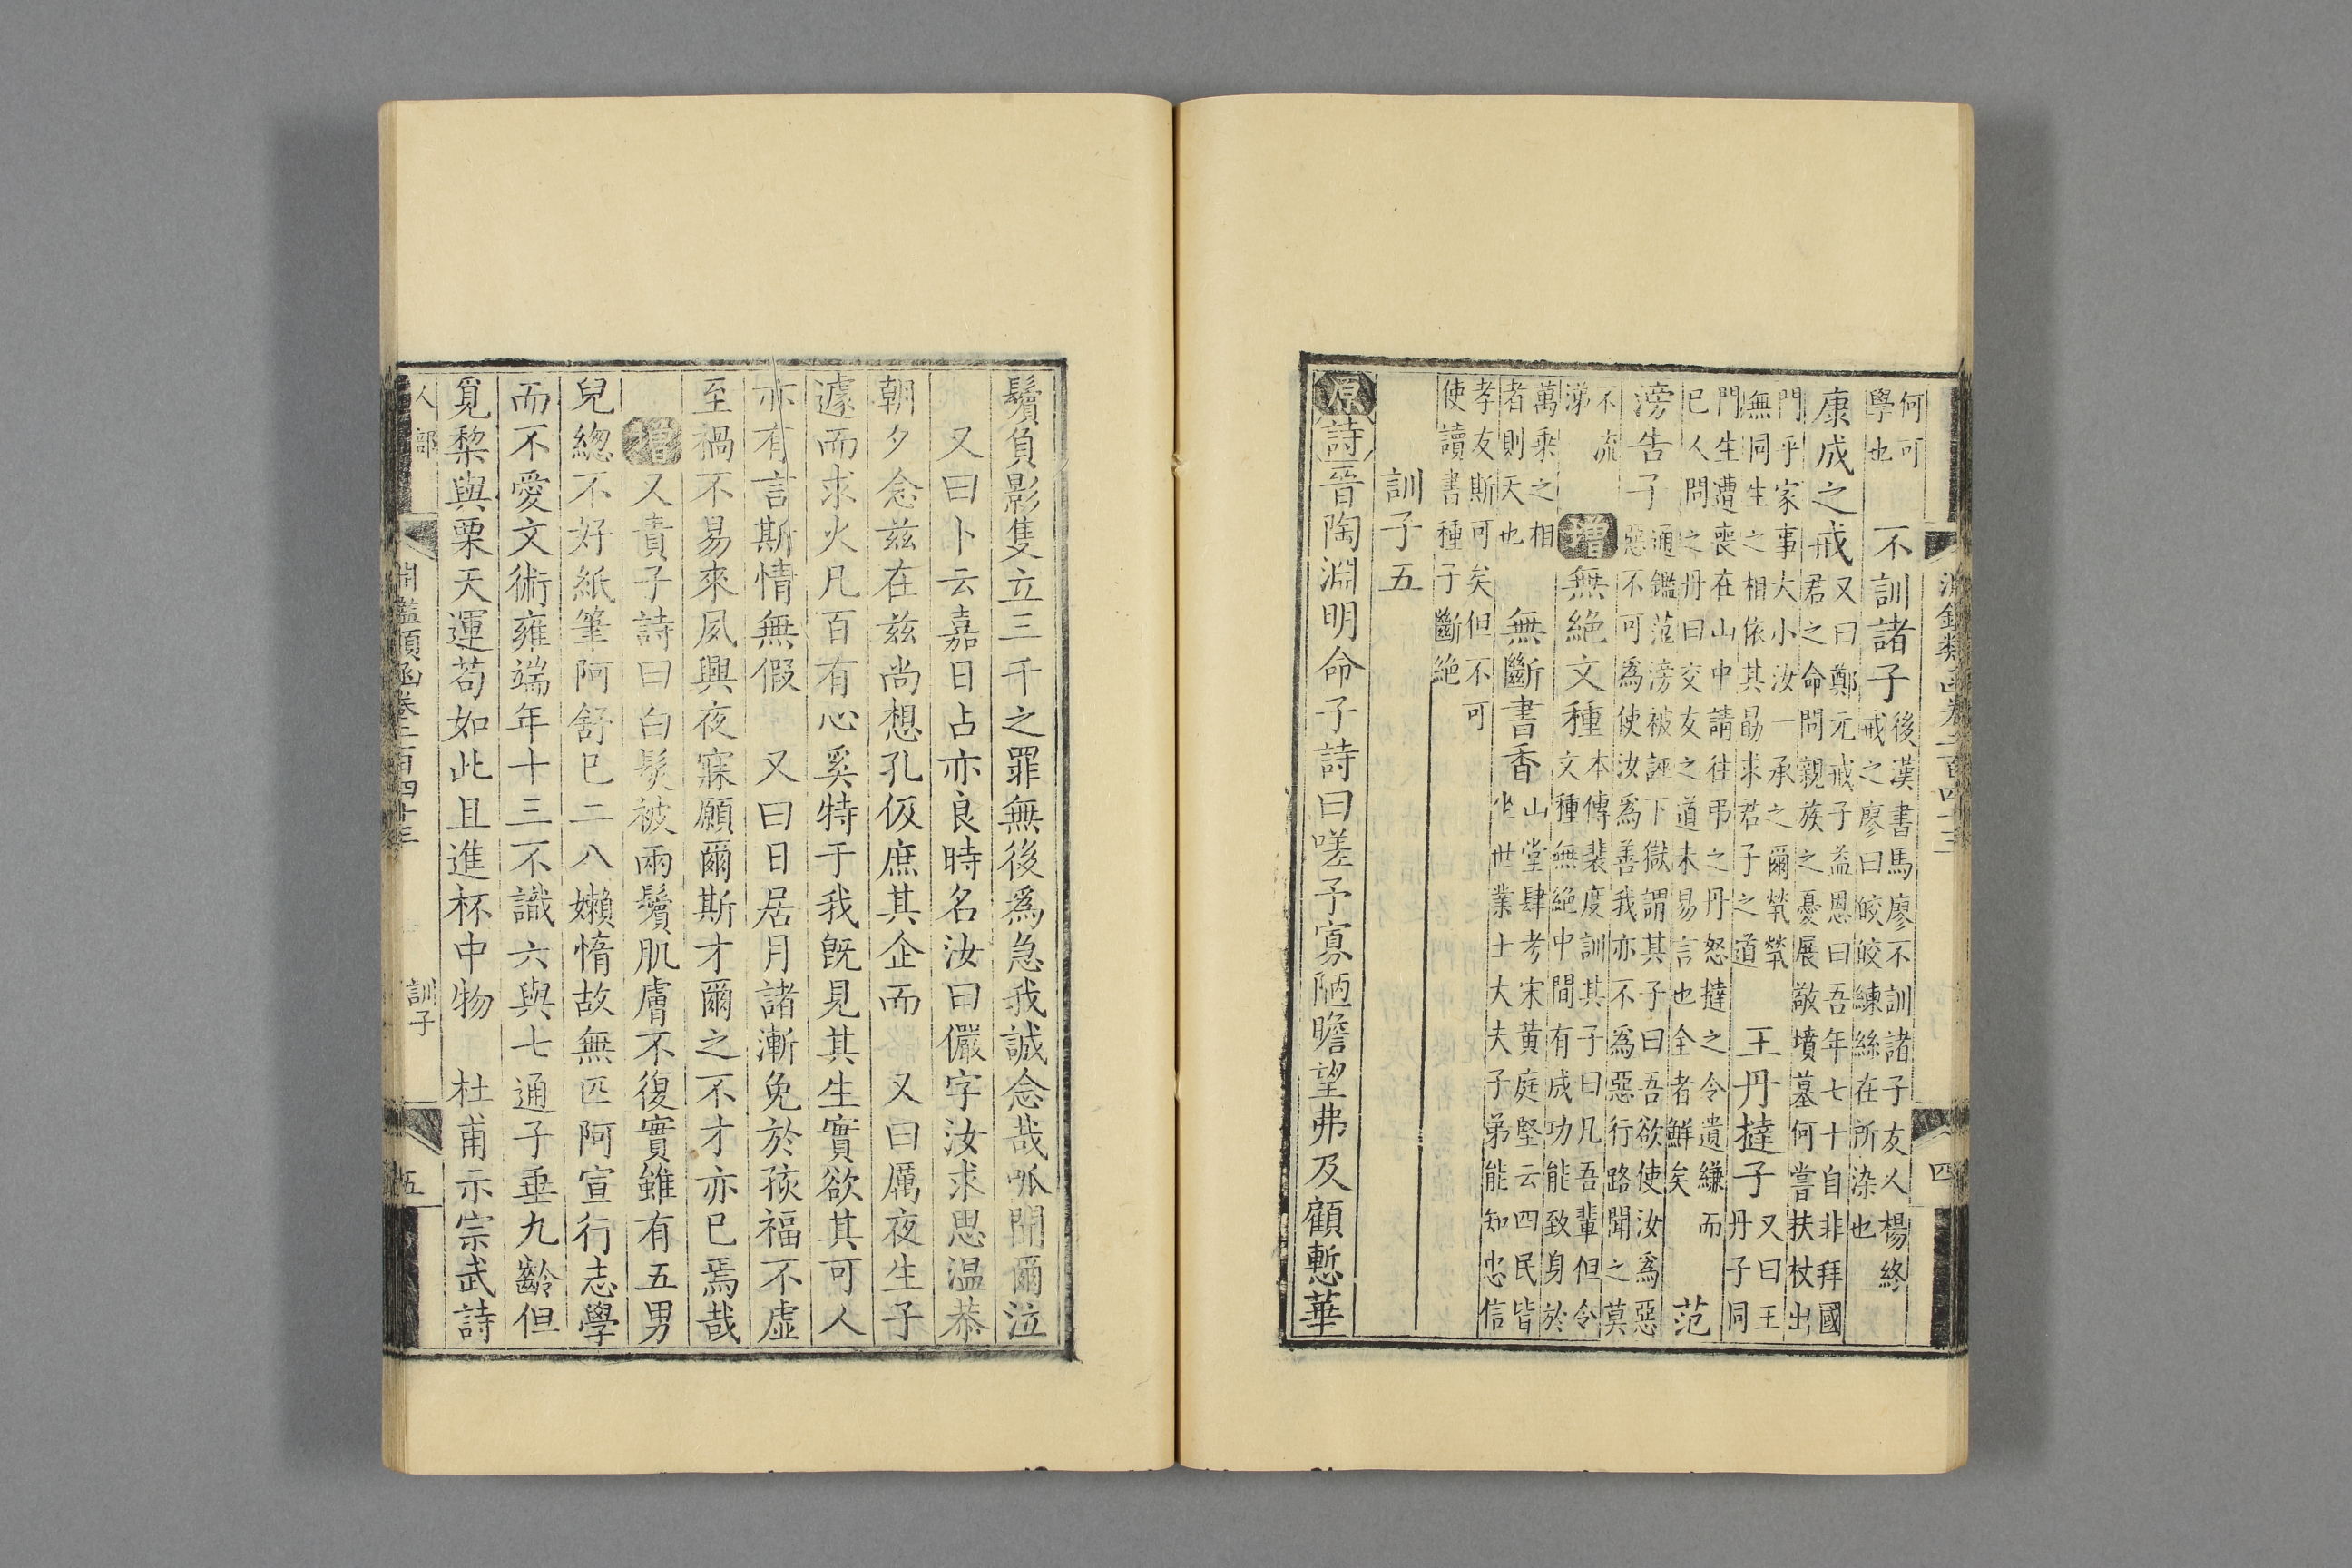 淵鑑類函卷二百四十三 四
何可
學也
不訓諸子
後漢書馬廖不訓諸子友人楊終
戒之廖曰皎皎練絲在所染也
康成之戒
又曰鄭元戒子益恩曰吾年七十自非拜國
君之命問親族之憂展敬墳墓何嘗扶杖出
門乎家事大小汝一承之爾煢煢
無同生之相依其勗求君子之道
王丹撻子
又曰王
丹子同
門生遭喪在山中請往弔之丹怒撻之令遺縑而
已人問之丹曰交友之道未易言也全者鮮矣
范
滂告子
通鑑范滂被誣下獄謂其子曰吾欲使汝爲惡
惡不可爲使汝爲善我亦不爲惡行路聞之莫
不流
涕
增無絕文種
本傳裴度訓其子曰凡吾輩但令
文種無絕中間有成功能致身於
萬乘之相
者則天也
無斷書香
山堂肆考宋黃庭堅云四民皆
坐世業士大夫子弟能知忠信
孝友斯可矣但不可
使讀書種子斷絕
訓子五
原詩晉陶淵明命子詩曰嗟予寡陋瞻望弗及顧慙華
鬢負影隻立三千之罪無後爲急我誠念哉呱聞爾泣
又曰卜云嘉日占亦良時名汝曰儼字汝求思温恭
朝夕念茲在茲尚想孔伋庶其企而 又曰厲夜生子
遽而求火凡百有心奚特于我既見其生實欲其可人
亦有言斯情無假 又曰日居月諸漸免於孩福不虛
至禍不易來夙興夜寐願爾斯才爾之不才亦已焉哉
增又責子詩曰白髮被兩鬢肌膚不復實雖有五男
兒緫不好紙筆阿舒已二八嬾惰故無匹阿宣行志學
而不愛文術雍端年十三不識六與七通子垂九齡但
覓棃與栗天運苟如此且進杯中物 杜甫示宗武詩
人部 淵鑑類函卷二百四十三 訓子 五